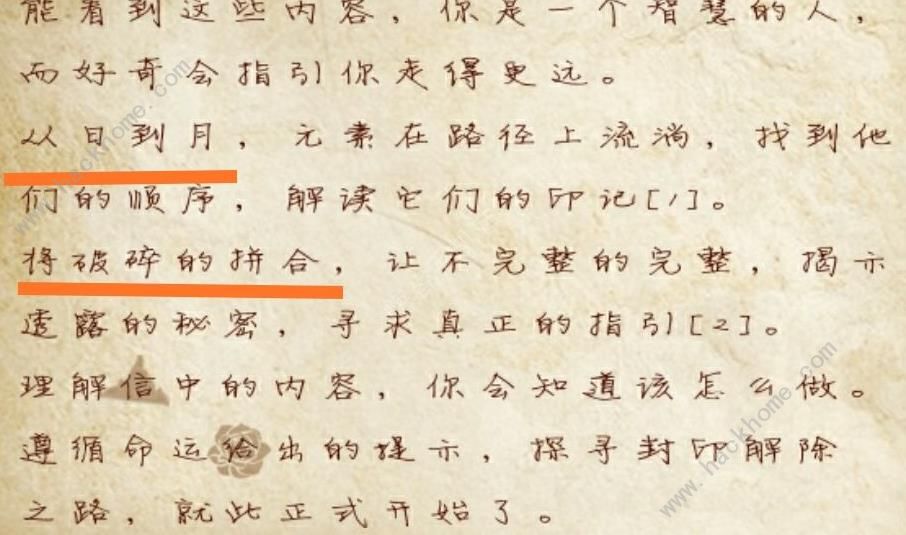 能看到这些内容，你是一个智慧的人，
而好奇会指引你走得更远。
从日到月，元素在路径上流淌，找到他
们的顺序，解读它们的印记[1]。
将破碎的拼合，让不完整的完整，揭示
透露的秘密，寻求真正的指引[2]。
理解信中的内容，你会知道该怎么做。
遵循命运给出的提示，探寻封印解除
之路，就此正式开始了。
www.hackhome.com
www.hackhome.com